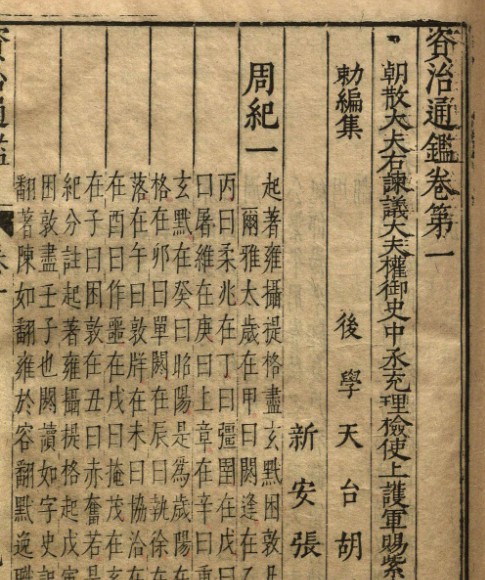 資治通鑑卷第一
朝散大夫右諫議大夫權御史中丞充理檢使上護軍賜紫
勑編集 後學天台胡
新安張
周紀一
起著雍攝提格盡玄黓困敦凡
爾雅太歲在甲曰閼逢在乙
丙曰柔兆在丁曰彊圉在戊
曰屠維在庚曰上章在辛曰重
玄黓在癸曰昭陽是為歲陽在
格在卯曰單閼在辰曰執徐在
落在午曰敦牂在未曰協洽在
在酉曰作噩在戌曰掩茂在亥
在子曰困敦在丑曰赤奮若是
紀分註起著雍攝提格起戊寅
困敦盡壬子也閼讀如字史記
翻著陳如翻雍於容翻黓逸職
資治通鑑